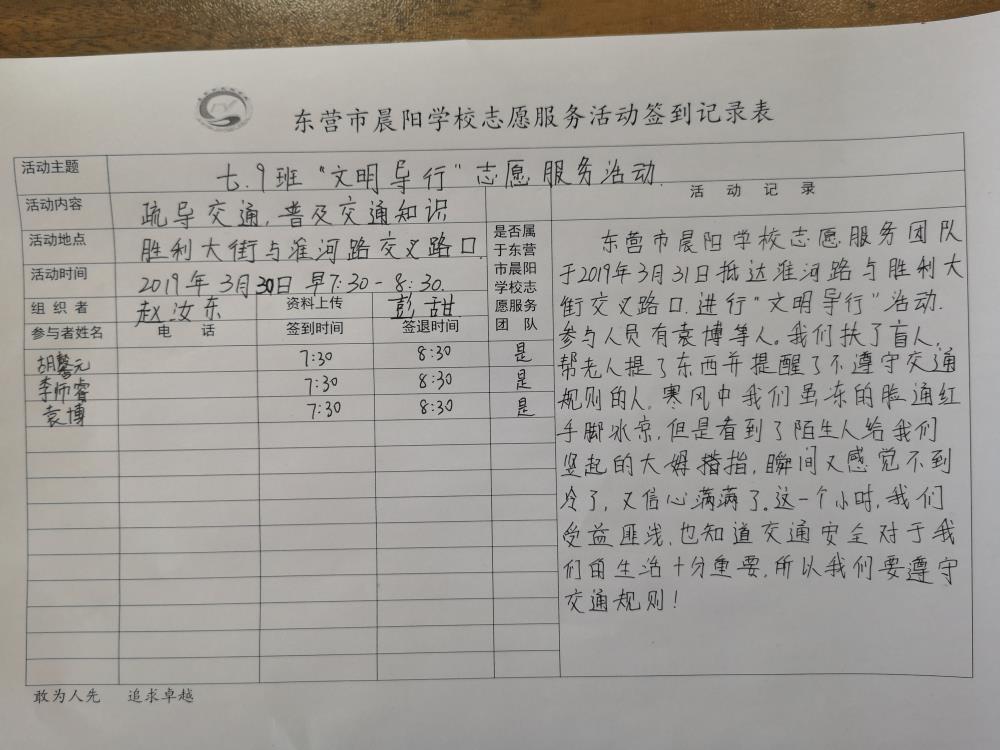 东营市晨阳学校志愿服务活动签到记录表
活动主题 七.9班“文明导行”志愿服务活动.
活动内容 疏导交通,普及交通知识
活动地点 胜利大街与淮河路交叉路口
活动时间 2019年3月30日早7:30-8:30.
组织者 赵汝东 资料上传 彭甜
是否属
于东营
市晨阳
学校志
愿服务
团队
参与者姓名 电话 签到时间 签退时间
胡馨元 7:30 8:30 是
李师睿 7:30 8:30 是
袁博 7:30 8:30 是
活动记录
东营市晨阳学校志愿服务团队
于2019年3月31日抵达淮河路与胜利大
街交叉路口.进行“文明导行”活动.
参与人员有袁博等人。我们扶了盲人,
帮老人提了东西并提醒了不遵守交通
规则的人。寒风中我们虽冻的脸通红
手脚冰凉,但是看到了陌生人给我们
竖起的大姆指,瞬间又感觉不到
冷了,又信心满满了.这一个小时,我们
受益匪浅,也知道交通安全对于我
们的生活十分重要,所以我们要遵守
交通规则!
敢为人先 追求卓越